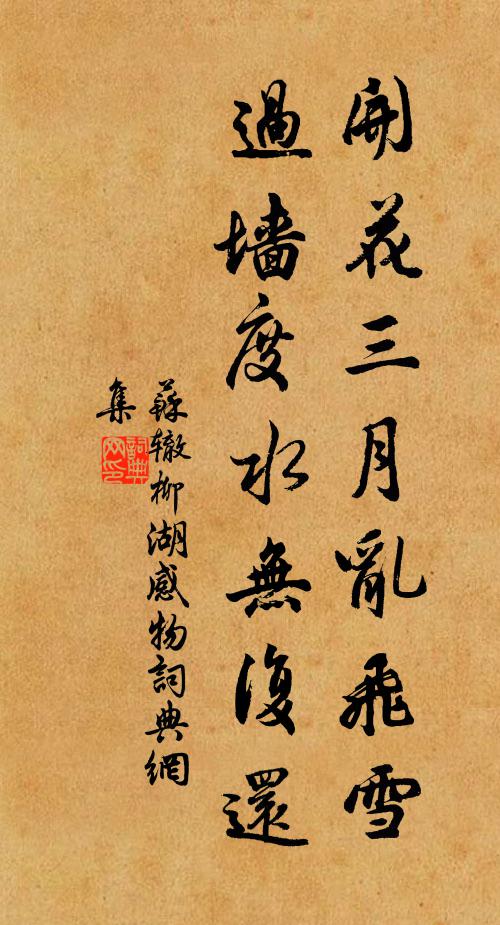 開花三月亂飛雪
過墻度水無復還
蘇轍柳湖感物詞典網
集
詞典網印